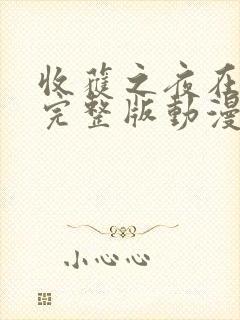 收穫之夜在
完整版動漫
小心心